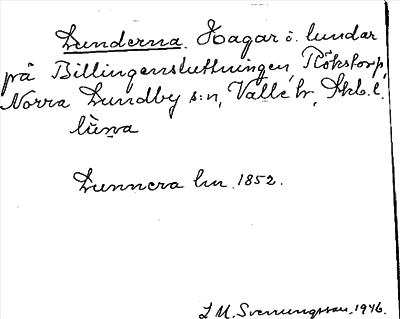 Lunderna. Hagar o. lundar
på Billingensluttningen, Rökstorp,
Norra Lundby s:n, Valle hr, Skb. l.
lùṇa
Lunnera lm 1852.
L M. Svenungsson, 1946.